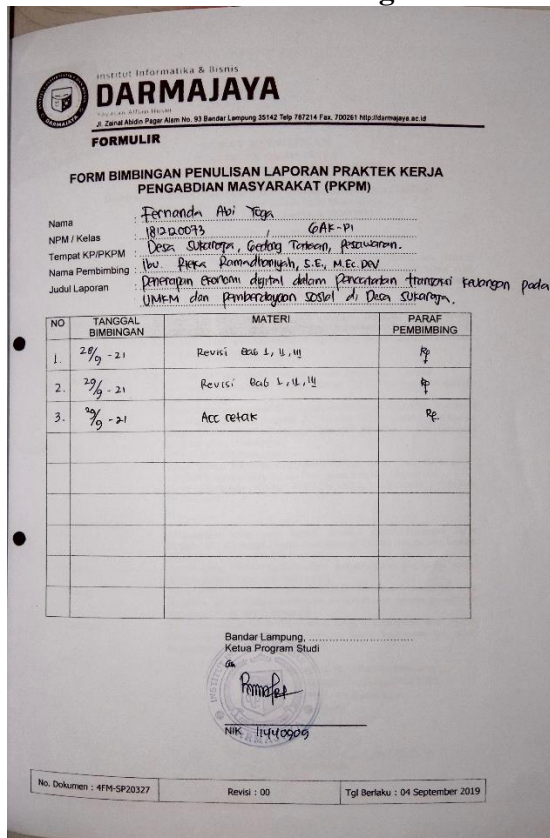 Institut Informatika & Bisnis
DARMAJAYA
Yayasan Alfian Husin
Jl. Zainal Abidin Pagar Alam No. 93 Bandar Lampung 35142 Telp 787214 Fax. 700261 http://darmajaya.ac.id
FORMULIR
FORM BIMBINGAN PENULISAN LAPORAN PRAKTEK KERJA
PENGABDIAN MASYARAKAT (PKPM)
Nama : Fernanda Abi Yoga
NPM / Kelas : 1812120073 / 6AK-P1
Tempat KP/PKPM : Desa Sukaraja, Gedong Tataan, Pesawaran.
Nama Pembimbing : Ibu. Rieka Ramadhaniyah, S.E., M.Ec.Dev
Judul Laporan : Penerapan ekonomi digital dalam pencatatan transaksi keuangan pada
UMKM dan pemberdayaan sosial di Desa Sukaraja.
NO TANGGAL BIMBINGAN MATERI PARAF PEMBIMBING
1. 28/9 - 21 Revisi Bab I, II, III
2. 29/9 - 21 Revisi Bab I, II, III
3. 29/9 - 21 Acc cetak
Bandar Lampung, ................................
Ketua Program Studi
an
NIK 11440909
No. Dokumen : 4FM-SP20327 Revisi : 00 Tgl Berlaku : 04 September 2019